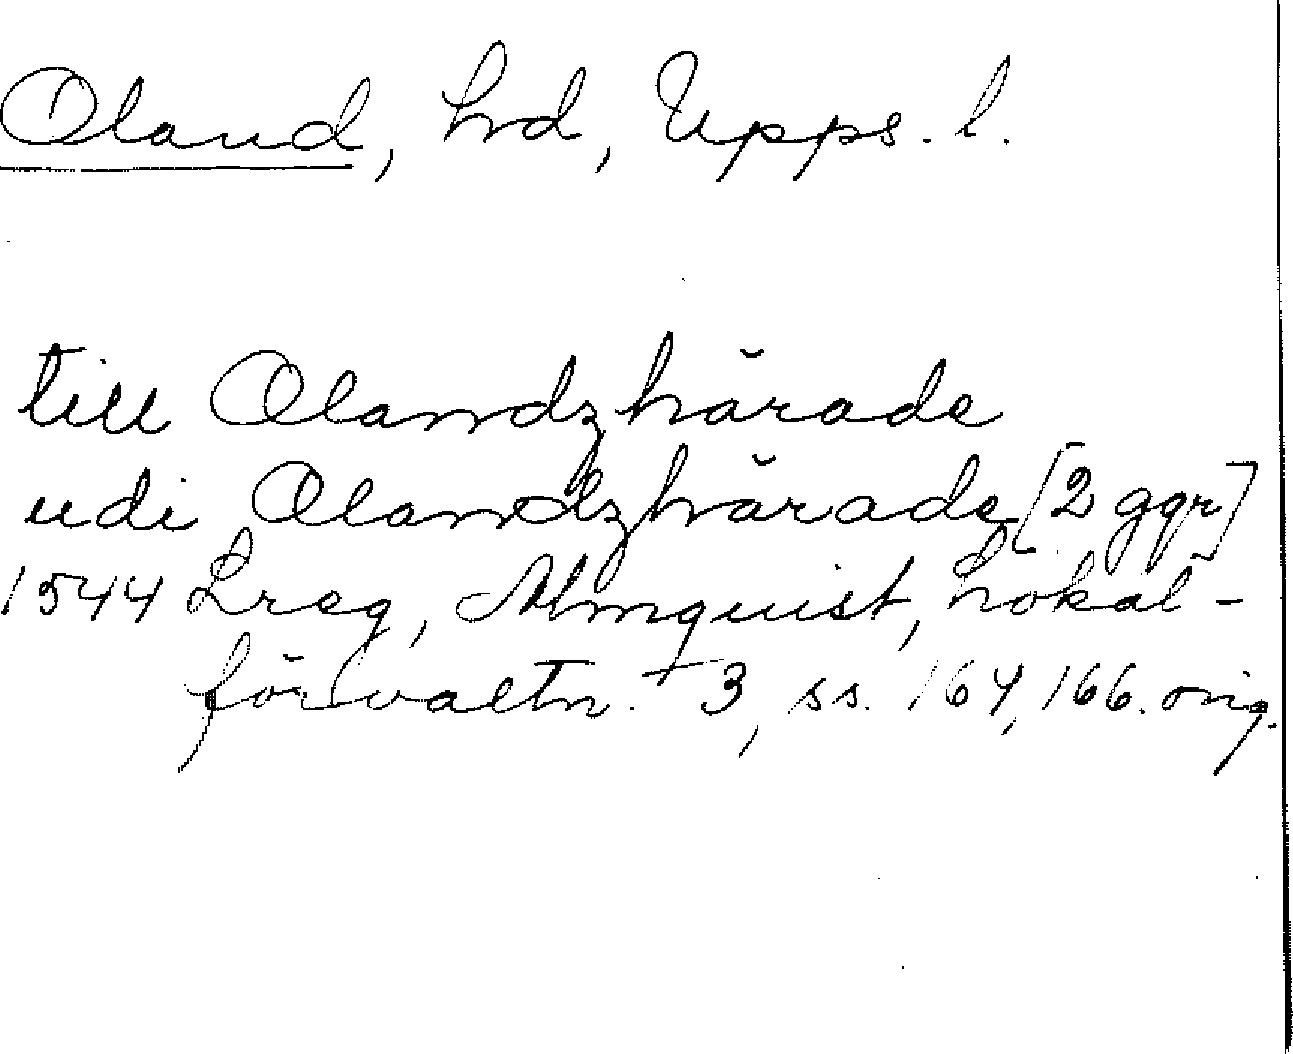 Oland, hrd, Upps. l.
till Olandzhärade
udi Olandzhärade [2 ggr]
1544 Lreg, Almquist, Lokal-
förvaltn. 3, ss. 164, 166. orig.